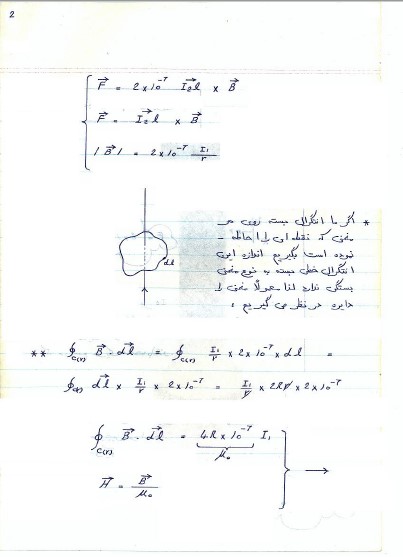 2
F = 2 × 10⁻⁷ I₂l × B
F = I₂l × B
|B| = 2 × 10⁻⁷ I₁/r
* اگر ما انتگرال بسته روی هر
منحنی که نقطه ای را احاطه
نموده است بگیریم اندازه این
انتگرال خطی بسته به نوع منحنی
بستگی ندارد لذا معمولاً منحنی را
دایره در نظر می گیریم :
dl
** ∮c(r) B · dl = ∮c(r) I₁/r × 2 × 10⁻⁷ × dl =
∮c(r) dl × I₁/r × 2 × 10⁻⁷ = I₁/r × 2πr × 2 × 10⁻⁷
∮c(r) B · dl = 4π × 10⁻⁷ I₁
μ₀
H = B/μ₀